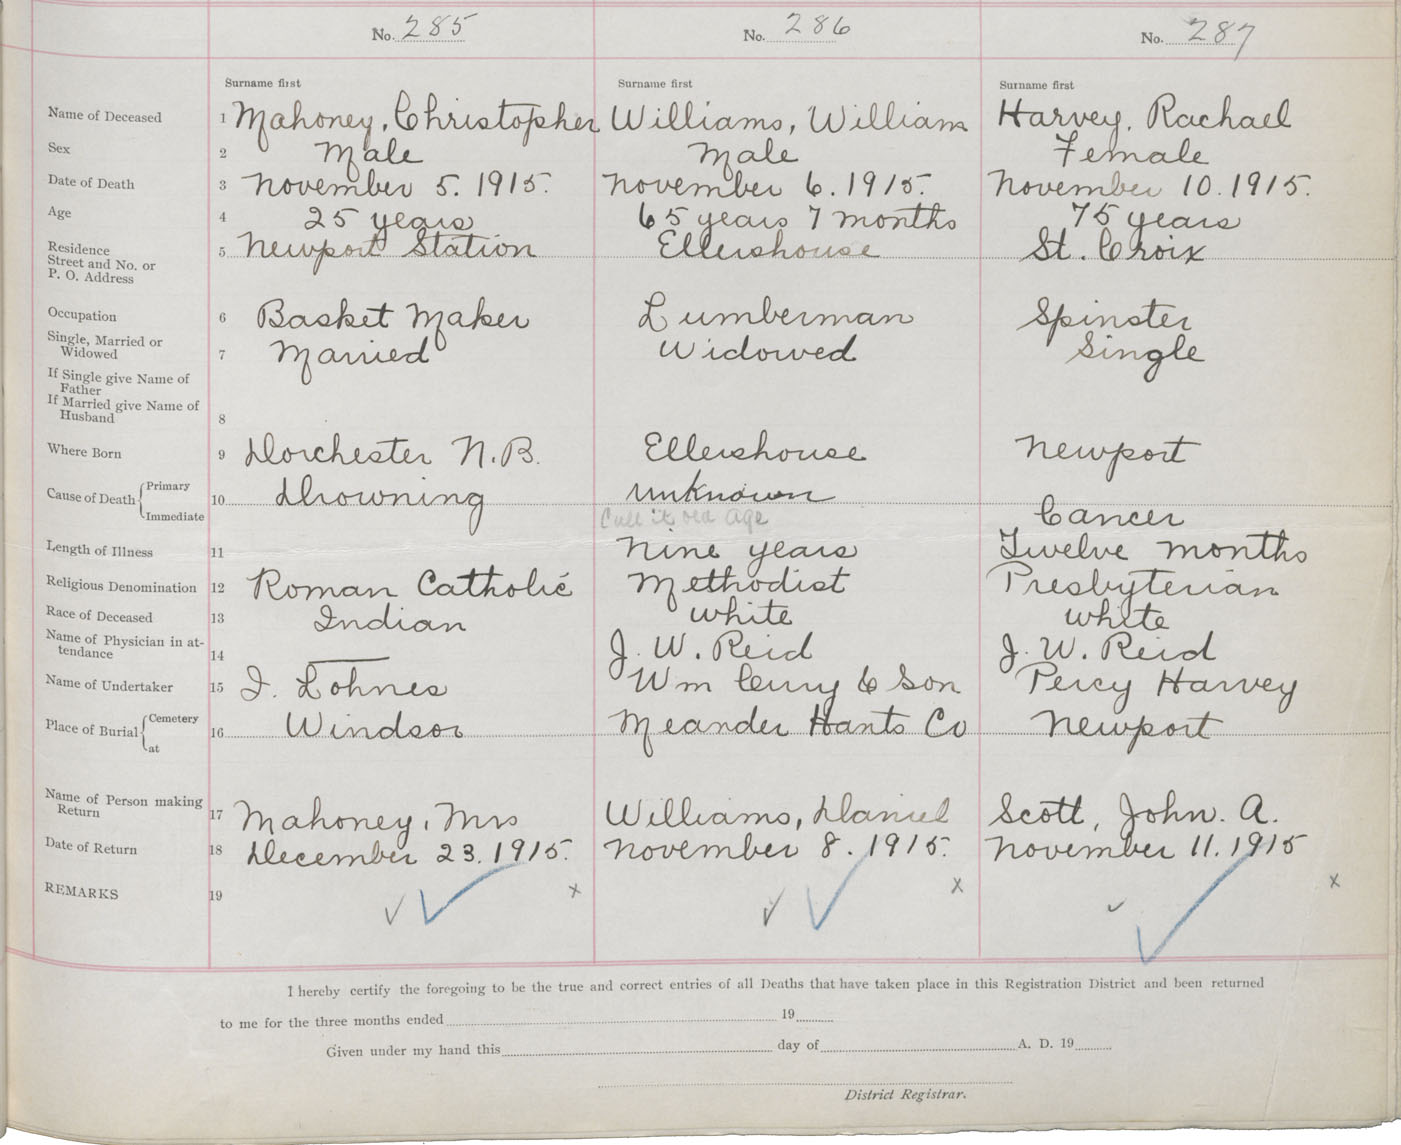 No. 285 No. 286 No. 287
Surname first Surname first Surname first
Name of Deceased 1 Mahoney, Christopher Williams, William Harvey, Rachael
Sex 2 Male Male Female
Date of Death 3 November 5. 1915. November 6. 1915. November 10. 1915.
Age 4 25 years 65 years 7 months 75 years
Residence
Street and No. or
P. O. Address 5 Newport Station Ellershouse St. Croix
Occupation 6 Basket Maker Lumberman Spinster
Single, Married or
Widowed 7 Married Widowed Single
If Single give Name of
Father
If Married give Name of
Husband 8
Where Born 9 Dorchester N.B. Ellershouse Newport
Cause of Death { Primary
Immediate 10 Drowning unknown Cancer
Call it old age
Length of Illness 11 Nine years Twelve months
Religious Denomination 12 Roman Catholic Methodist Presbyterian
Race of Deceased 13 Indian white white
Name of Physician in at-
tendance 14 J. W. Reid J. W. Reid
Name of Undertaker 15 I. Lohnes Wm Curry & Son Percy Harvey
Place of Burial { Cemetery
at 16 Windsor Meander Hants Co Newport
Name of Person making
Return 17 Mahoney, Mrs Williams, Daniel Scott, John. A.
Date of Return 18 December 23. 1915. November 8. 1915. November 11. 1915
REMARKS 19 x x x
I hereby certify the foregoing to be the true and correct entries of all Deaths that have taken place in this Registration District and been returned
to me for the three months ended 19
Given under my hand this day of A. D. 19
District Registrar.